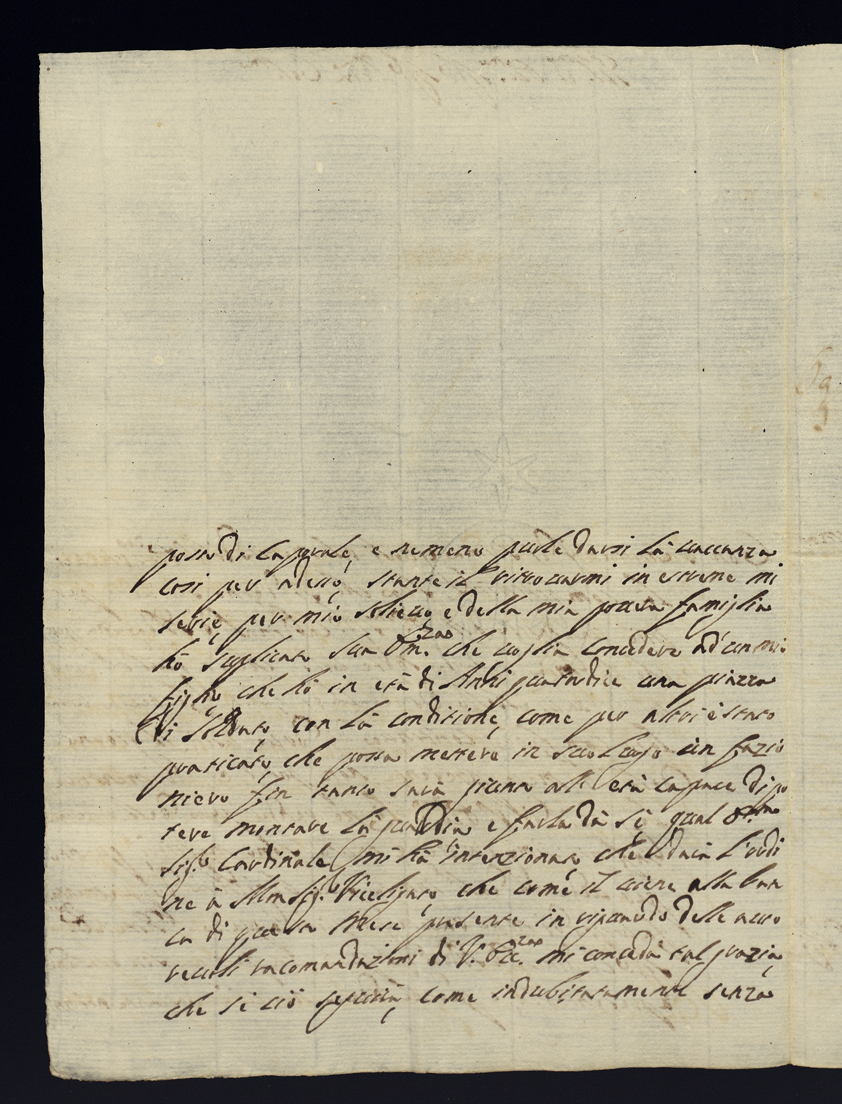 posto di Caporale, e nemeno puole darsi la vaccanza
così per adesso, stante il ritrovarmi in estreme mi
serie per mio solievo, e della mia povera famiglia
hò suplicato Sua Em.za che voglia concedere ad un mio
figlio che hò in età di Anni quatordici una piazza
di Soldato, con la conditione, come per altri è stato
praticato, che possa mettere in suo luogo un fazio
niero fin tanto sarà gionto all'età capace di po
tere montare la guardia e farla da sè, qual
Sig.r Cardinale mi hà intenzionato che darà l'ordi
ne à Mons.r Vicelegato che come il viene alla ban
ca di questo Mese presente in riguardo delle auto
revoli racomandazioni di V. Ecc.za mi conceda tal grazia
che se ciò seguirà, come indubitatamente senza